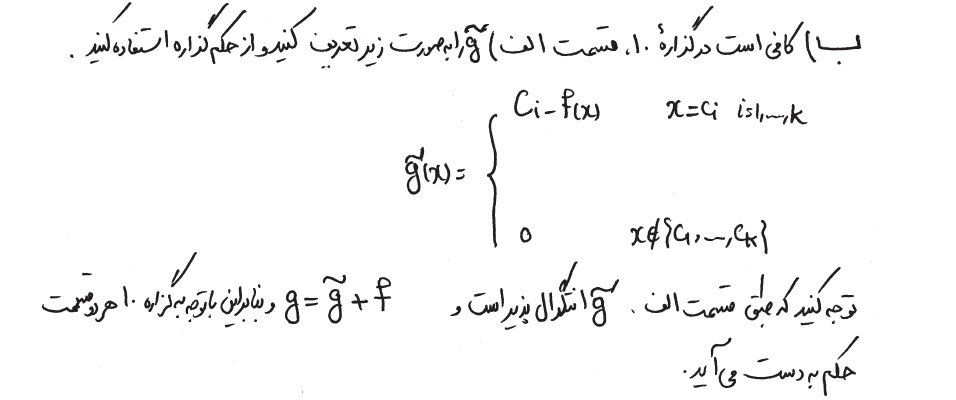 ب) کافی است در گزارهٔ ۱۰، قسمت الف) g̃ را به صورت زیر تعریف کنید و از حکم گزاره استفاده کنید.
g̃(x) = { Ci - f(x)    x = ci  i=1,...,k
0    x ∉ {c1,...,ck}
توجه کنید که طبق قسمت الف، g̃ انتگرال پذیر است و g = g̃ + f و بنابراین با توجه به گزاره ۱۰ هر دو قسمت
حکم به دست می‌آید.